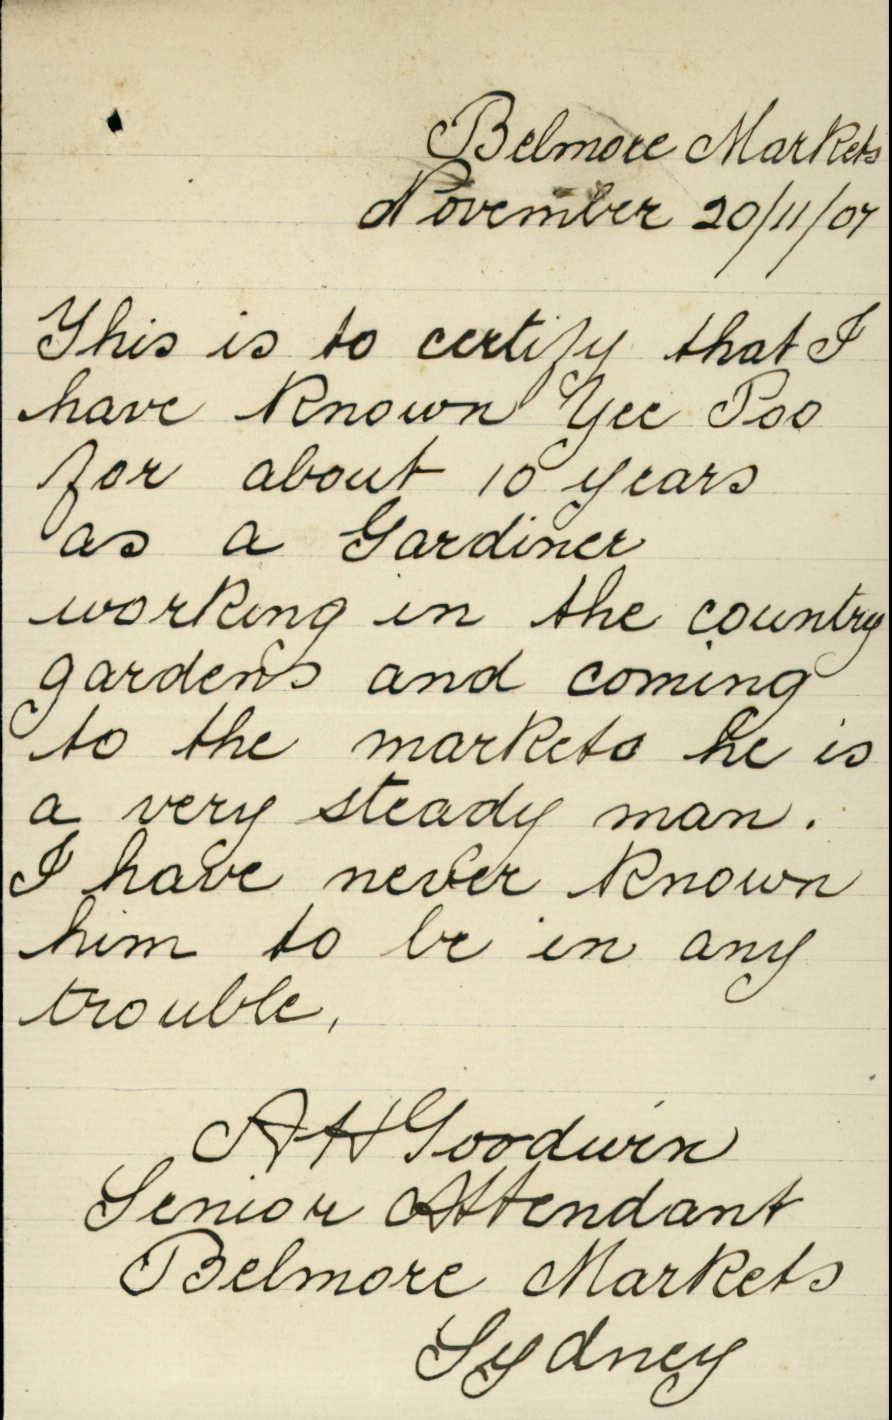 Belmore Markets
November 20/11/07
This is to certify that I
have known Yee Poo
for about 10 years
as a Gardiner
working in the country
gardens and coming
to the markets he is
a very steady man.
I have never known
him to be in any
trouble,
A H Goodwin
Senior Attendant
Belmore Markets
Sydney